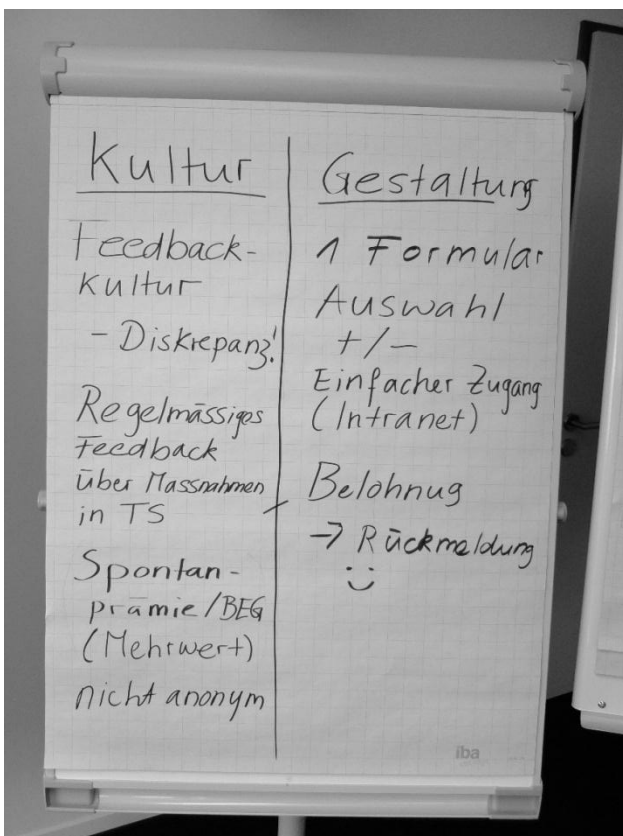 Kultur
Feedback-
Kultur
- Diskrepanz!
Regelmässiges
Feedback
über Massnahmen
in TS
Spontan-
prämie/BEG
(Mehrwert)
nicht anonym
Gestaltung
1 Formular
Auswahl
+/-
Einfacher Zugang
(Intranet)
Belohnug
→ Rückmeldung
iba